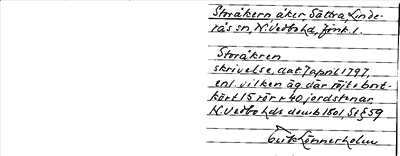 Storåkern, åker, Sättra, Linde-
rås sn, N. Vedbo hd, Jönk. l.
Storåkren
skrivelse, dat 7 april 1797,
enl. vilken äg. där röjt o bort-
kört 15 rör o 40 jordstenar,
N. Vedbo hds domb 1801, St § 59
Erik Lönnerholm